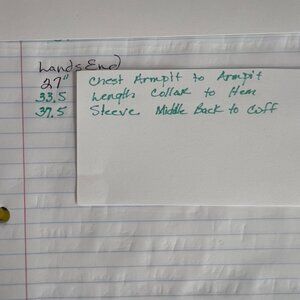 Lands End
27" Chest Armpit to Armpit
33.5 Length Collar to Hem
37.5 Sleeve Middle Back to Cuff